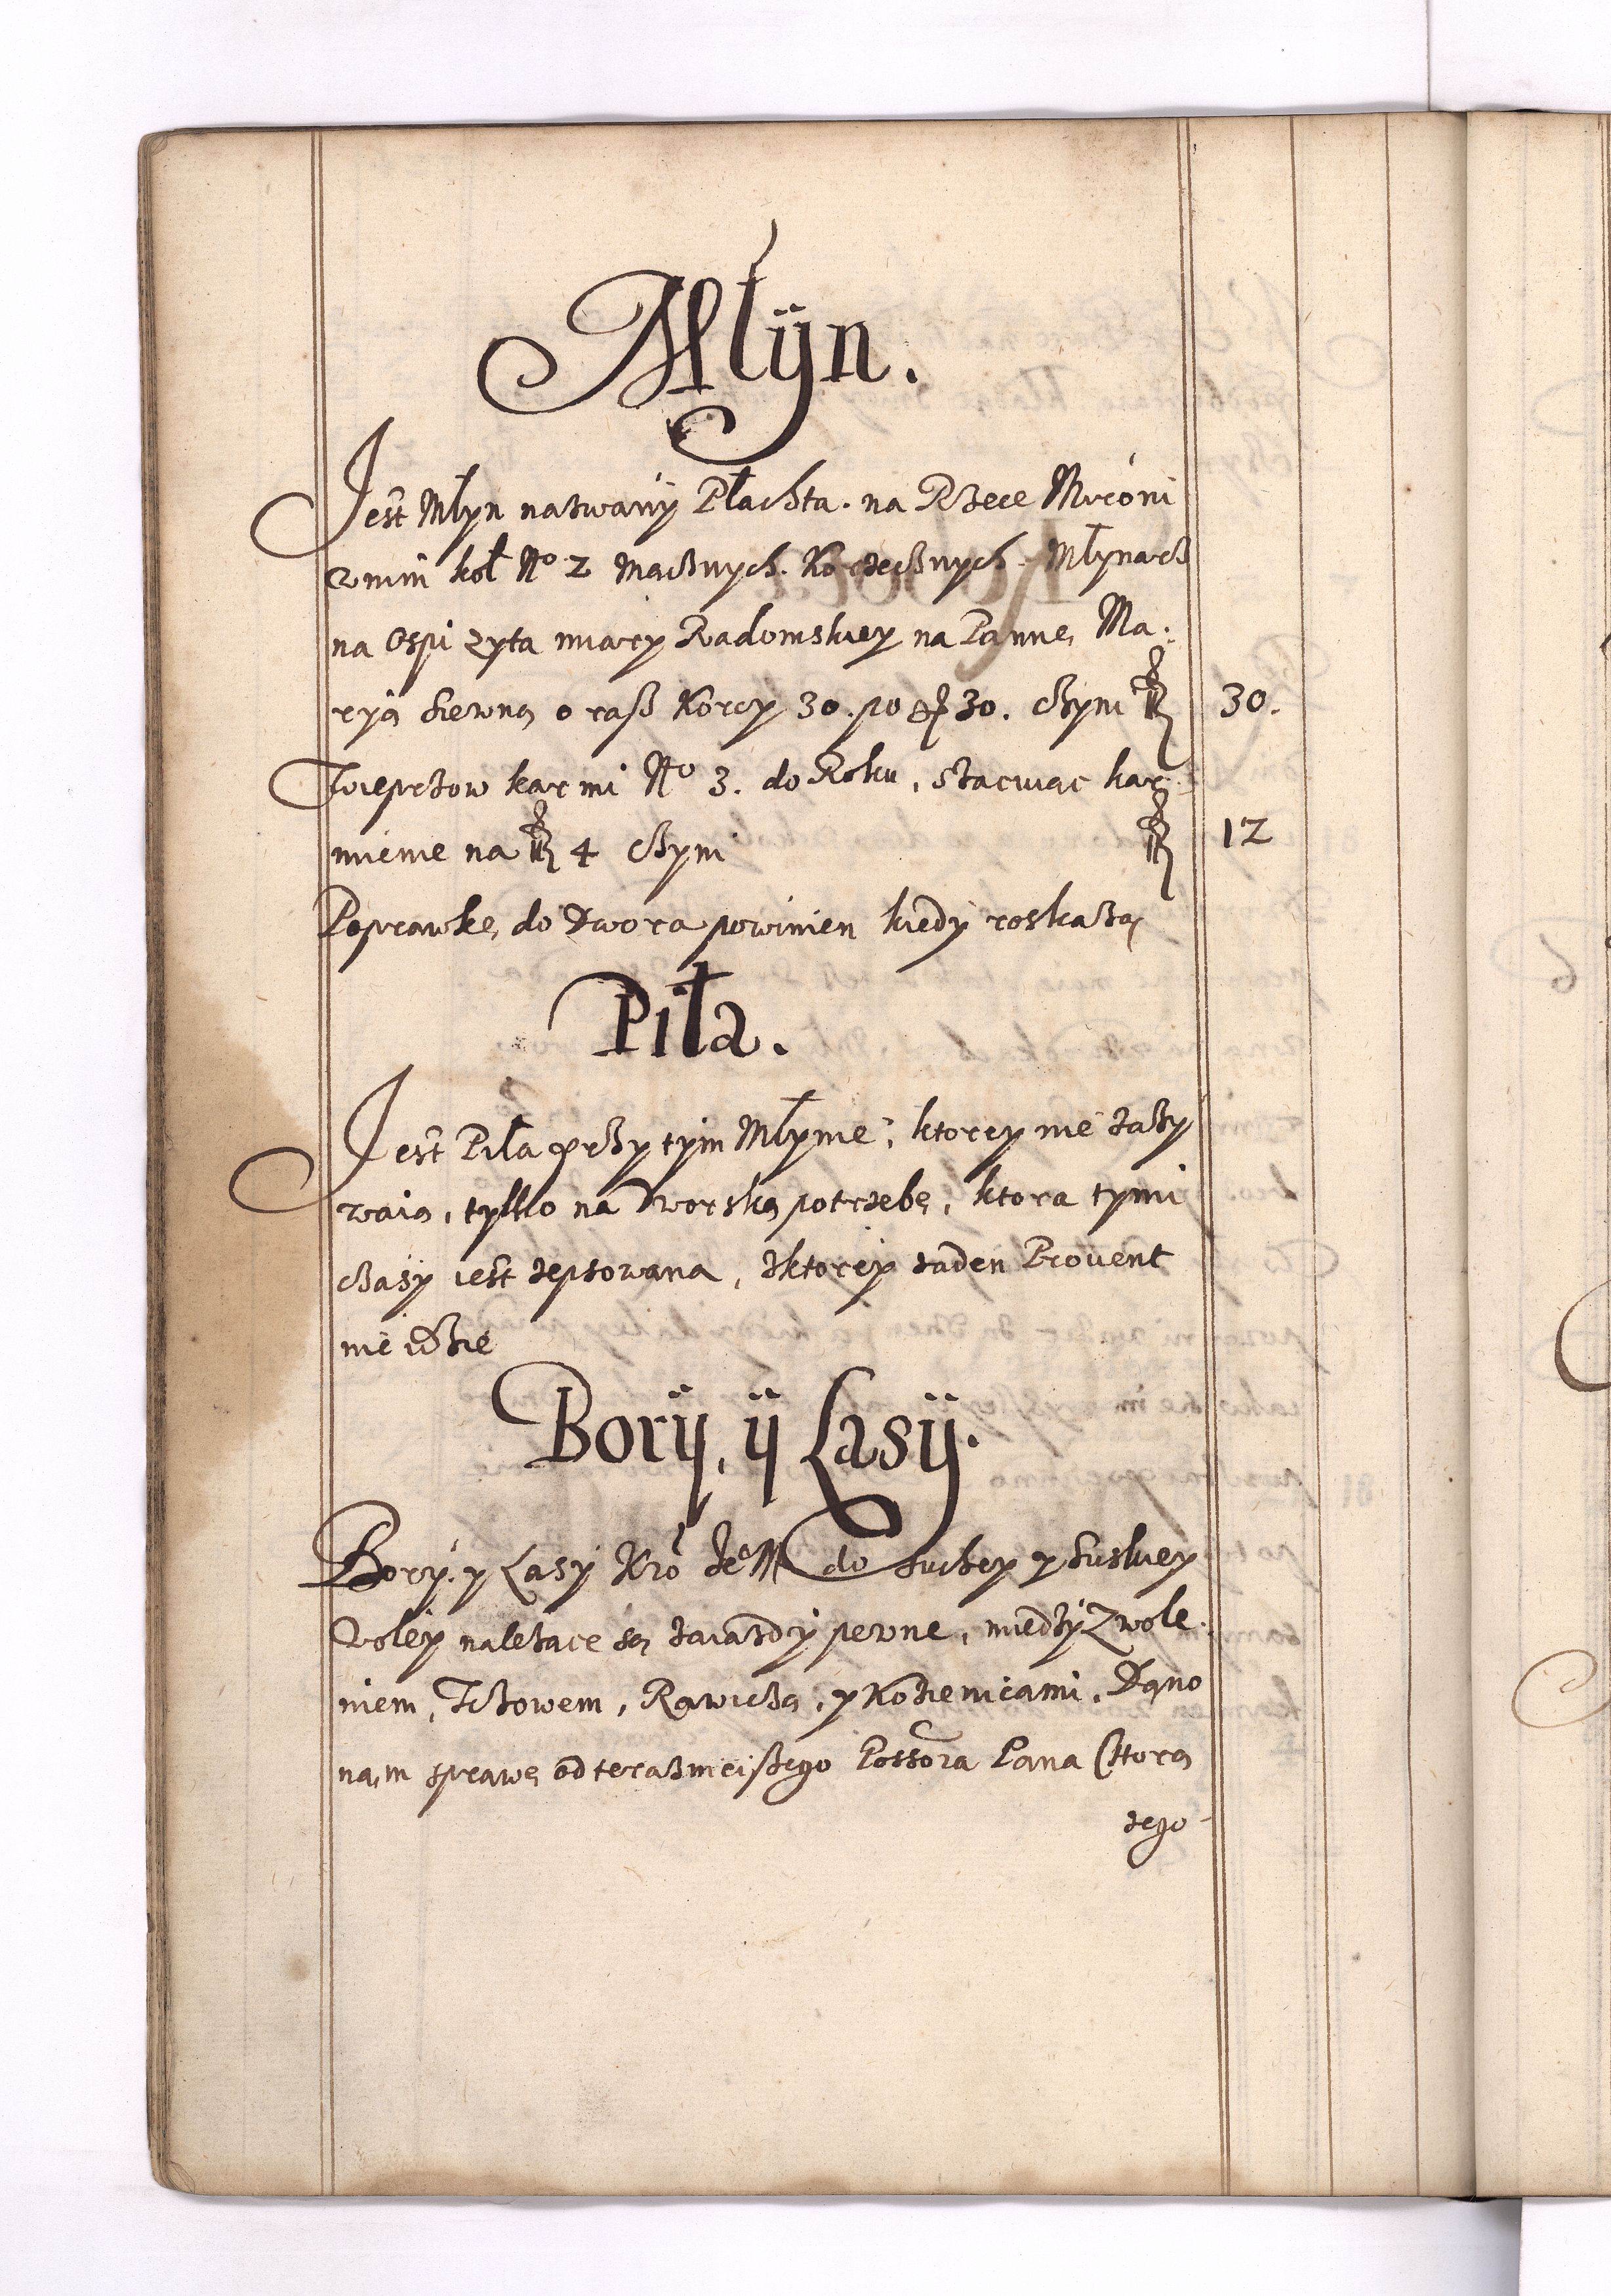 Młÿn.
Jest Młyn nazwany Płachta. na Rzece Mironi
w nim kół No 2 macznych. Korzecznych. Młynarz
na Ospi zyta miary Radomskiey na Pannę Ma:
ryą siewną oraz Korcy 30. po gr 30. czyni 30.
Wieprzow karmi No 3. do Roku, szacuiąc kar
mienie na 4 czyni 12
Poprawkę do Dwora powinien kiedy roskażą
Piła.
Jest Piła przy tym Młynie, ktorey nie zazy
waią, tylko na dworską potrzebę, ktora tymi
czasy iest zepsowana, zktorey zaden Prouent
nie idzie
Borÿ, ÿ Lasÿ.
Bory. y Lasy Kró Je M do Suchey y Suskiey
Woley nalezące są zaiazdy pewne, między Zwole
niem, Tczowem, Rawiczą, y Kozienicami, Dano
nam sprawę od teraznieiszego Possora Pana Cztora
zego